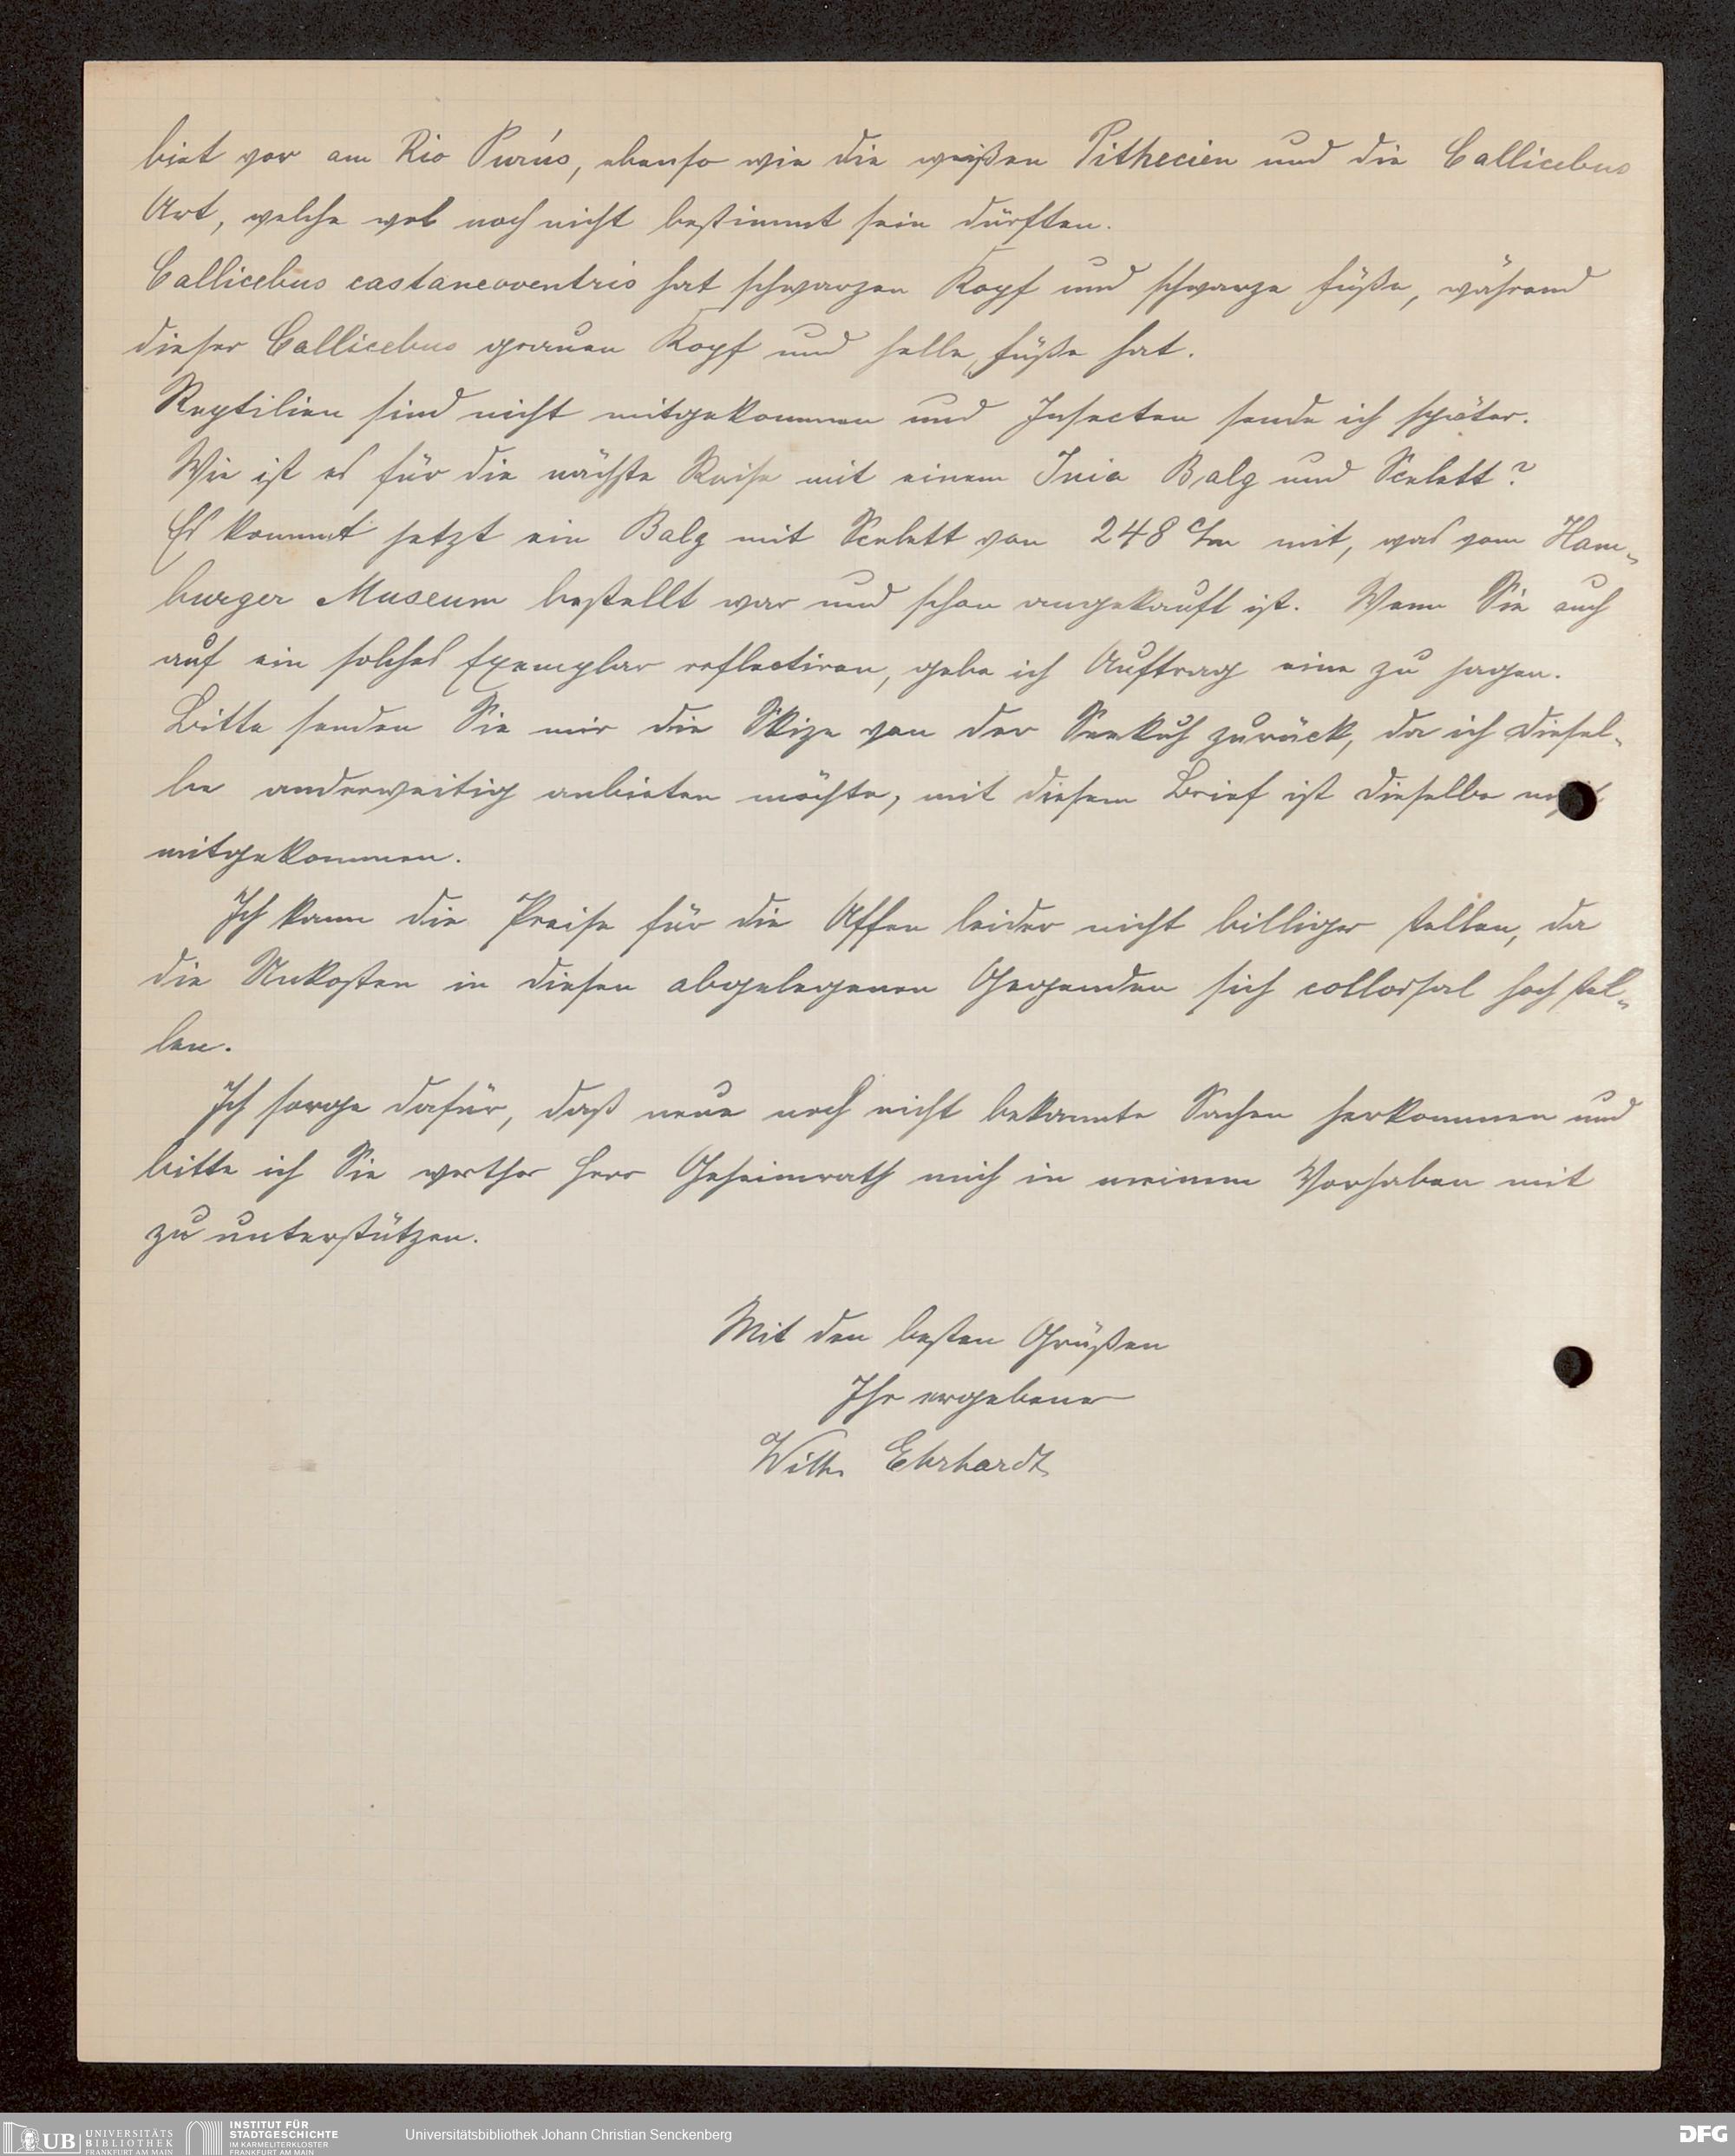 biet vor am Rio Purús, ebenso wie die weißen Pithecien und die Callicebus
Art, welche wol noch nicht bestimmt sein dürften.
Callicebus castaneoventris hat schwarzen Kopf und schwarze Füße, während
dieser Callicebus grauen Kopf und helle Füße hat.
Reptilien sind nicht mitgekommen und Insecten sende ich später.
Wie ist es für die nächste Reise mit einem Inia Balg und Scelett?
Es kommt jetzt ein Balg mit Scelett von 248 c/m mit, was vom Ham-
burger Museum bestellt war und schon angekauft ist. Wenn Sie auch
auf ein solches Exemplar reflectiren, gebe ich Auftrag eine zu jagen.
Bitte senden Sie mir die Skize von der Seekuh zurück, da ich diesel-
be anderweitig anbieten möchte, mit diesem Brief ist dieselbe nicht
mitgekommen.
Ich kann die Preise für die Affen leider nicht billiger stellen, da
die Unkosten in diesen abgelegenen Gegenden sich collossal hoch stel-
len.
Ich sorge dafür, daß neue noch nicht bekannte Sachen herkommen und
bitte ich Sie werther Herr Geheimrath mich in meinem Vorhaben mit
zu unterstützen.
Mit den besten Grüßen
Ihr ergebener
Wilh. Ehrhardt
UB UNIVERSITÄTS BIBLIOTHEK FRANKFURT AM MAIN
INSTITUT FÜR STADTGESCHICHTE IM KARMELITERKLOSTER FRANKFURT AM MAIN
Universitätsbibliothek Johann Christian Senckenberg
DFG